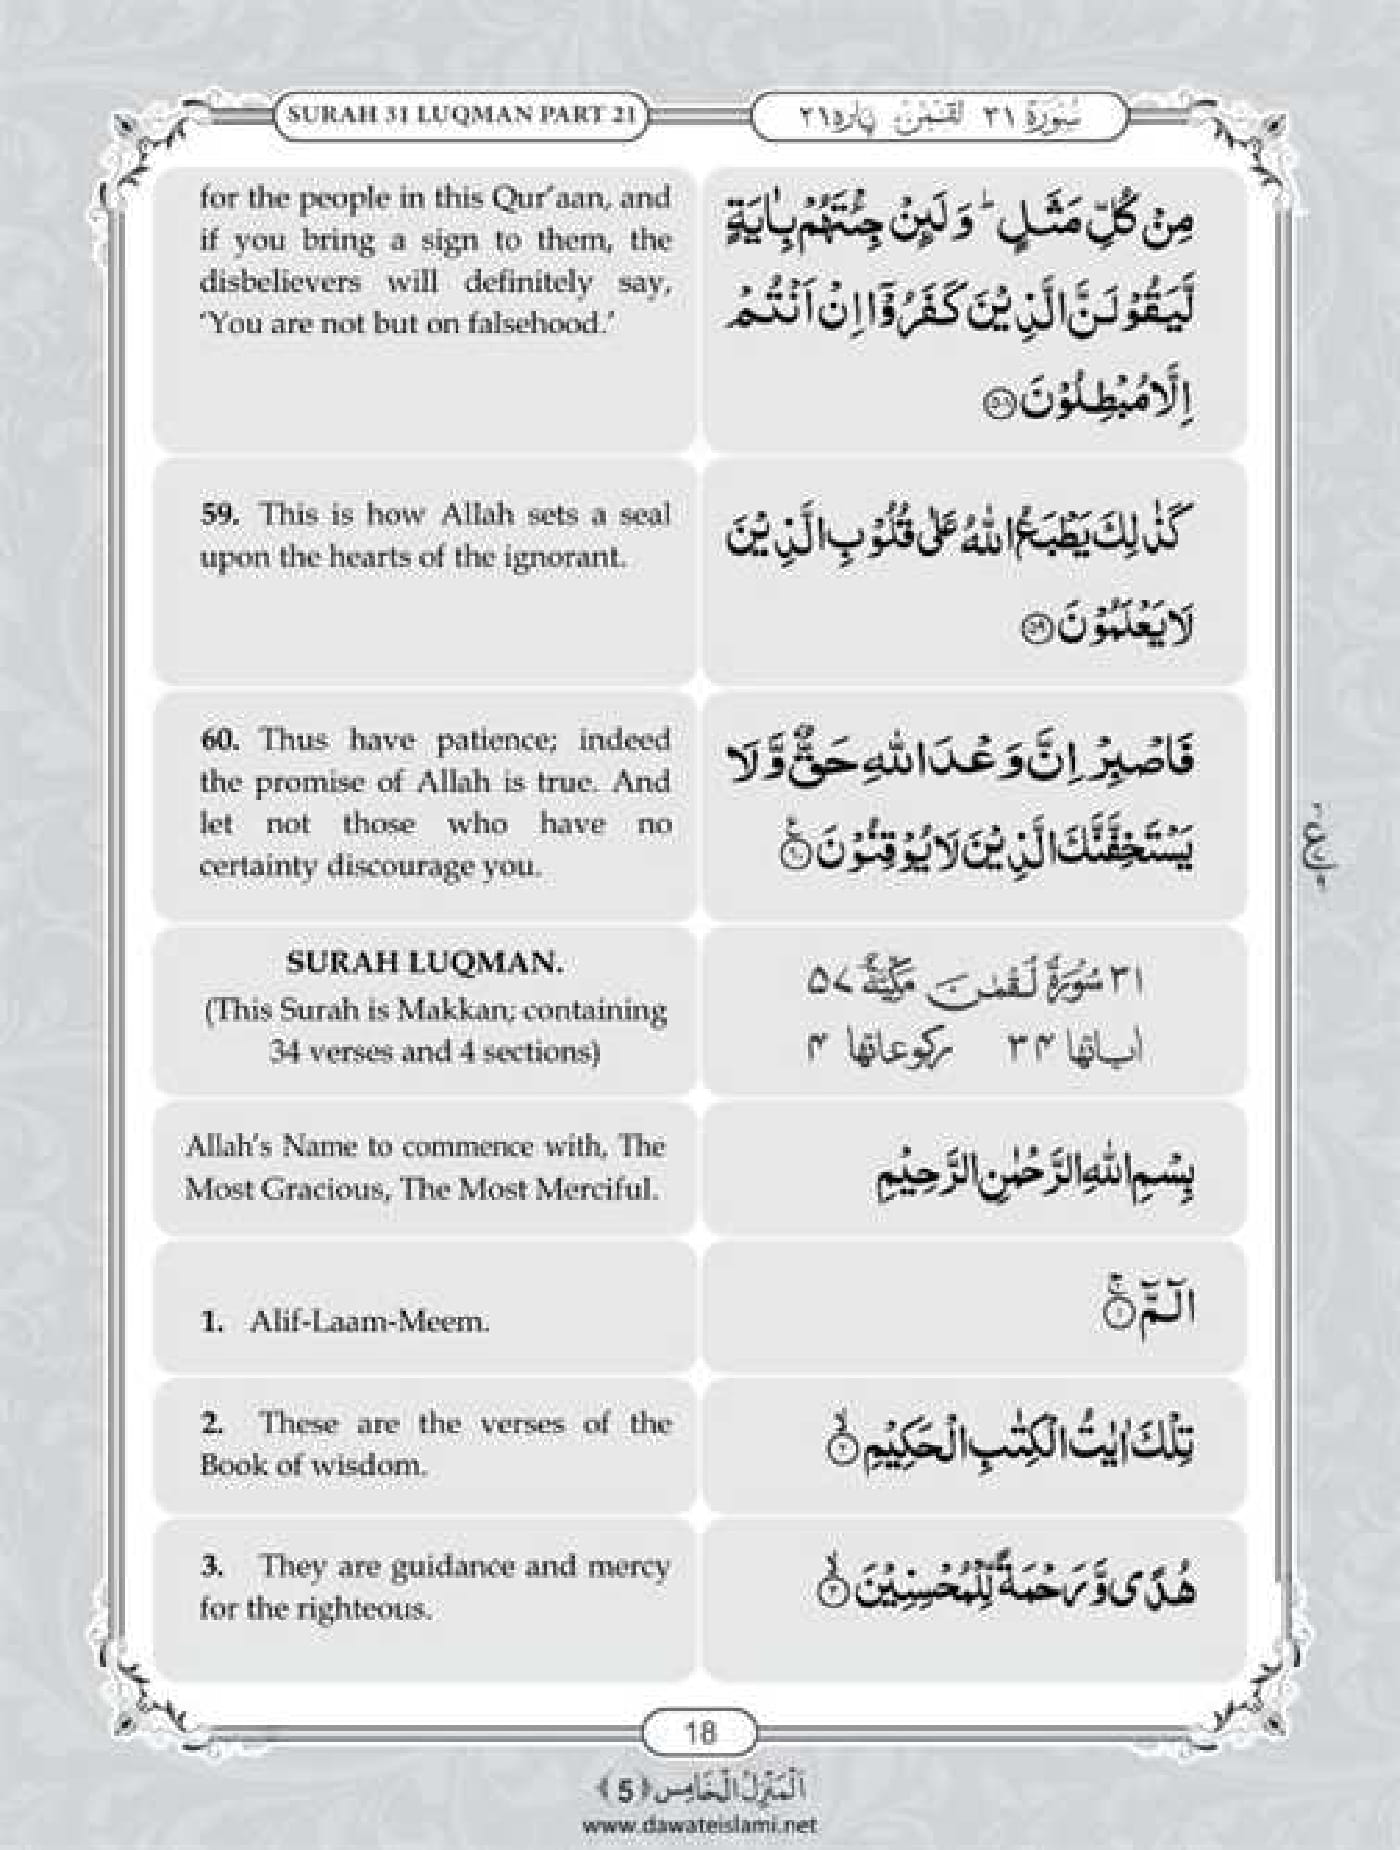 SURAH 31 LUQMAN PART 21
سُوْرَۃ ٣١ لُقْمٰن پارہ ٢١
for the people in this Qur'aan, and
if you bring a sign to them, the
disbelievers will definitely say,
'You are not but on falsehood.'
مِنْ كُلِّ مَثَلٍ ؕ وَلَىِٕنْ جِئْتَهُمْ بِاٰيَةٍ
لَّيَقُوْلَنَّ الَّذِيْنَ كَفَرُوْۤا اِنْ اَنْتُمْ
اِلَّا مُبْطِلُوْنَ ﴿۵۸﴾
59. This is how Allah sets a seal
upon the hearts of the ignorant.
كَذٰلِكَ يَطْبَعُ اللّٰهُ عَلٰى قُلُوْبِ الَّذِيْنَ
لَا يَعْلَمُوْنَ ﴿۵۹﴾
60. Thus have patience; indeed
the promise of Allah is true. And
let not those who have no
certainty discourage you.
فَاصْبِرْ اِنَّ وَعْدَ اللّٰهِ حَقٌّ وَّ لَا
يَسْتَخِفَّنَّكَ الَّذِيْنَ لَا يُوْقِنُوْنَ ﴿۶۰﴾
SURAH LUQMAN.
(This Surah is Makkan; containing
34 verses and 4 sections)
٣١ سُوْرَةُ لُقْمٰنَ مَكِّيَّةٌ ۵۷
اٰیاتها ۳۴ رکوعاتها ۴
Allah's Name to commence with, The
Most Gracious, The Most Merciful.
بِسْمِ اللّٰهِ الرَّحْمٰنِ الرَّحِيْمِ
1. Alif-Laam-Meem.
الٓمّٓ ﴿۱﴾
2. These are the verses of the
Book of wisdom.
تِلْكَ اٰيٰتُ الْكِتٰبِ الْحَكِيْمِ ﴿۲﴾
3. They are guidance and mercy
for the righteous.
هُدًى وَّ رَحْمَةً لِّلْمُحْسِنِيْنَ ﴿۳﴾
18
اَلْمَنْزِلُ الْخَامِس ﴿5﴾
www.dawateislami.net